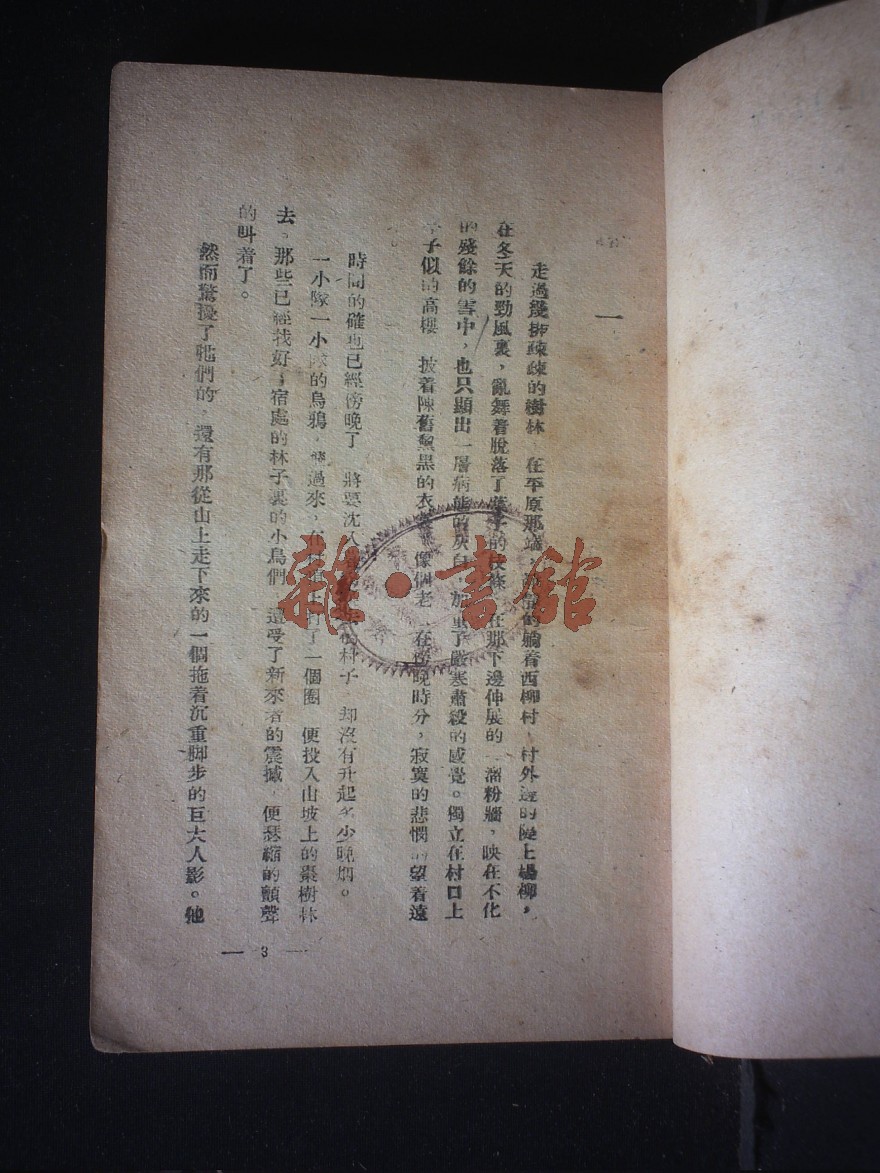 一
走過幾排疎疎的樹林 在平原那端，的躺着西柳村，村外邊的隄上楊柳，
在冬天的勁風裏，亂舞着脫落了葉子的枝條 在那下邊伸展的一溜粉牆，映在不化
的殘餘的雪中，也只顯出一層病態的灰白 加重了嚴寒肅殺的感覺。獨立在村口上
子似的高樓 披着陳舊黧黑的衣 像個老 在傍晚時分，寂寞的悲憫的望着遠
。
時間的確也已經傍晚了 將要沈入 村子 却沒有升起多少晚烟。
一小隊一小隊的烏鴉，飛過來，在 打了一個圈 便投入山坡上的棗樹林
去。那些已經找好了宿處的林子裏的小鳥們 遭受了新來者的震撼，便瑟縮的顫聲
的叫着了。
然而驚擾了牠們的，還有那從山上走下來的一個拖着沉重脚步的巨大人影。他
— 3 —
雜·書館